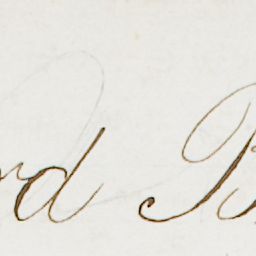 rd B